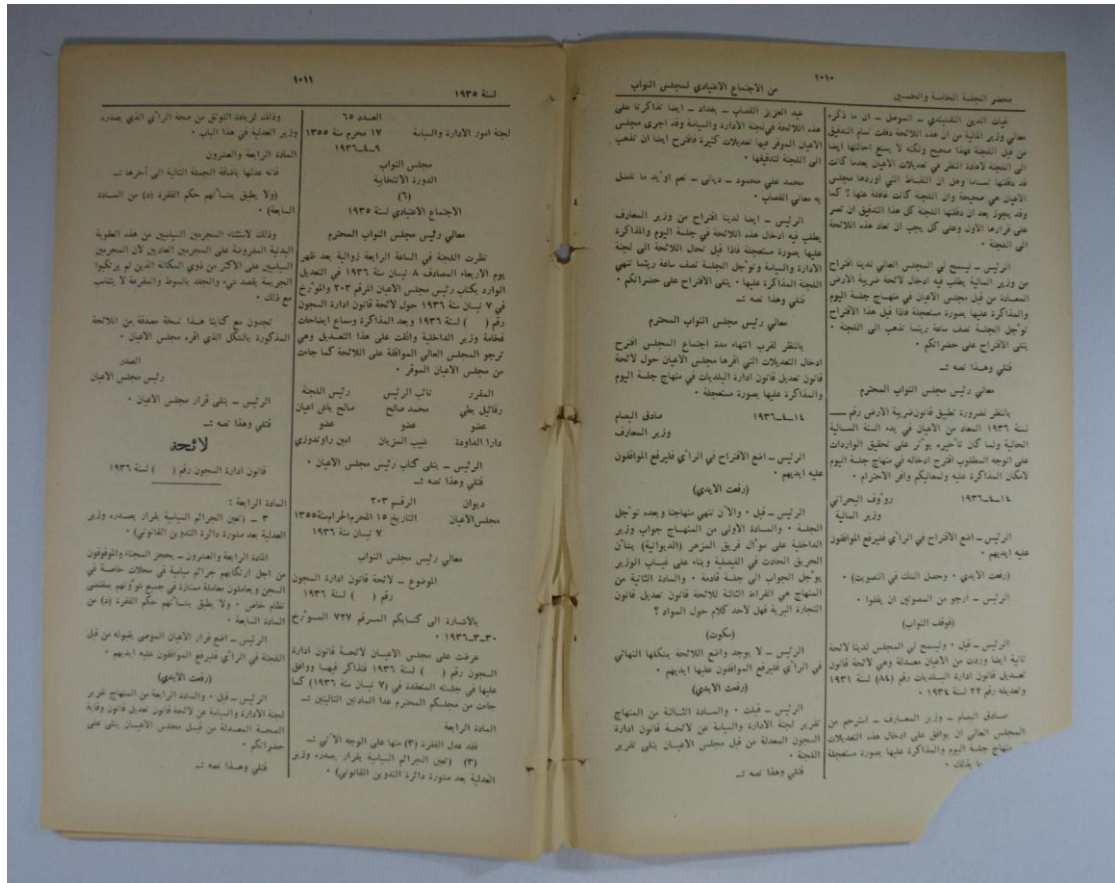 ١٠١٠
محضر الجلسة الخامسة والخمسين
من الاجتماع الاعتيادي لمجلس النواب
غياث الدين النقشبندي ــ الموصل ــ ان ما ذكره
معالي وزير المالية من ان هذه اللائحة دققت تمام التدقيق
من قبل اللجنة فهذا صحيح ولكنه لا يمنع احالتها ايضا
الى اللجنة لاعادة النظر في تعديلات الاعيان بعدما كانت
قد دققتها تماما وهل ان النقاط التي اوردها مجلس
الاعيان هي صحيحة وان اللجنة كانت غافلة عنها ؟ كما
وقد يجوز بعد ان دققتها اللجنة كل هذا التدقيق ان تصر
على قرارها الاول وعلى كل يجب ان تعاد هذه اللائحة
الى اللجنة ٠
الرئيس ــ ليسمح لي المجلس العالي لدينا اقتراح
من وزير المالية يطلب فيه ادخال لائحة ضريبة الارض
المعادة من قبل مجلس الاعيان في منهاج جلسة اليوم
والمذاكرة عليها بصورة مستعجلة فاذا قبل هذا الاقتراح
توءجل الجلسة نصف ساعة ريثما تذهب الى اللجنة ٠
يتلى الاقتراح على حضراتكم ٠
فتلي وهـذا نصه :ــ
معالي رئيس مجلس النواب المحترم
بالنظر لضرورة تطبيق قانون ضريبة الارض رقم ــــ
لسنة ١٩٣٦ المعاد من الاعيان في بدء السنة المـالية
الحالية ولما كان تأخيره يوءثر على تحقيق الواردات
على الوجه المطلوب اقترح ادخاله في منهاج جلسة اليوم
لامكان المذاكرة عليه ولمعاليكم وافر الاحترام ٠
١٤ــ٤ــ١٩٣٦ روءوف البحراني
وزير المالية
الرئيس ــ اضع الاقتراح في الرأي فليرفع الموافقون
عليه ايديهم ٠
(رفعت الايدي ٠ وحصل الشك في التصويت) ٠
الرئيس ــ ارجو من المصوتين ان يقفوا ٠
(فوقف النواب)
الرئيس ــ قبل ٠ وليسمح لي المجلس لدينا لائحة
ثانية ايضا وردت من الأعيان معـدلة وهي لائحة قانون
تعـديل قانون ادارة البـلديات رقم (٨٤) لسنة ١٩٣١
وتعديله رقم ٢٢ لسنة ١٩٣٤ ٠
صـادق البصام ــ وزير المعـارف ــ استرحم من
المجلس العالي ان يوافق على ادخال هذه التعديلات
منهاج جلسة اليوم والمذاكرة عليها بصورة مستعجلة
ما بذلك ٠
عبد العزيز القصاب ــ بغداد ــ ايضا تذاكرنا على
هذه اللائحة في لجنة الادارة والسياسة وقد اجرى مجلس
الاعيان الموقر فيها تعديلات كثيرة فاقترح ايضا ان تذهب
الى اللجنة لتدقيقها ٠
محمد علي محمود ــ ديالى ــ نعم اوءيد ما تفضل
به معالي القصاب ٠
الرئيس ــ ايضا لدينا اقتراح من وزير المعارف
يطلب فيه ادخال هذه اللائحة في جلسة اليوم والمذاكرة
عليها بصورة مستعجلة فاذا قبل تحال اللائحة الى لجنة
الادارة والسياسة وتوءجل الجلسة نصف ساعة ريثما تنهي
اللجنة المذاكرة عليها ٠ يتلى الاقتراح على حضراتكم ٠
فتلي وهذا نصه :ــ
معالي رئيس مجلس النواب المحترم
بالنظر لقرب انتهاء مدة اجتماع المجلس اقترح
ادخال التعديلات التي اقرها مجلس الاعيان حول لائحة
قانون تعديل قانون ادارة البلديات في منهاج جلسة اليوم
والمذاكرة عليها بصورة مستعجلة ٠
١٤ــ٤ــ١٩٣٦ صادق البصام
وزير المعارف
الرئيس ــ اضع الاقتراح في الرأي فليرفع الموافقون
عليه ايديهم ٠
(رفعت الايدي)
الرئيس ــ قبل ٠ والآن تنهي منهاجنا وبعده توءجل
الجلسة ٠ والمـادة الاولى من المنهـاج جواب وزير
الداخلية على سوءال فريق المزهر (الديوانية) بشأن
الحريق الحادث في الفيصلية وبناء على غيـاب الوزير
يوءجل الجواب الى جلسة قادمة ٠ والمادة الثانية من
المنهاج هي القراءة الثالثة للائحة قانون تعديل قانون
التجارة البرية فهل لاحد كلام حول المواد ؟
(سكوت)
الرئيس ــ لا يوجد واضع اللائحة بشكلها النهائي
في الرأي فليرفع الموافقون عليها ايديهم ٠
(رفعت الايدي)
الرئيس ــ قبلت ٠ والمـادة الثـالثة من المنهاج
تقرير لجنة الادارة والسياسة عن لائحـة قانون ادارة
السجون المعدلة من قبل مجلس الاعيـان يتلى تقرير
اللجنة ٠
فتلي وهذا نصه :ــ
١٠١١
لسنة ١٩٣٥
العـدد ٦٥
لجنة امور الادارة والسياسة ١٧ محرم سنة ١٣٥٥
٩ــ٤ــ١٩٣٦
مجلس النواب
الدورة الانتخابية
(٦)
الاجتماع الاعتيادي لسنة ١٩٣٥
معالي رئيس مجلس النواب المحترم
نظرت اللجنة في الساعة الرابعة زوالية بعد ظهر
يوم الاربعاء المصادف ٨ نيسان سنة ١٩٣٦ في التعديل
الوارد بكتاب رئيس مجلس الاعيان المرقم ٢٠٣ والموءرخ
في ٧ نيسان سنة ١٩٣٦ حول لائحة قانون ادارة السجون
رقم ( ) لسنة ١٩٣٦ وبعد المذاكرة وسماع ايضاحات
فخامة وزير الداخلية وافقت على هذا التعـديل وهي
ترجو المجلس العالي الموافقة على اللائحة كما جاءت
من مجلس الاعيان الموقر ٠
المقرر نائب الرئيس رئيس اللجنة
رفائيل بطي محمد صالح صالح باش اعيان
عضو عضو عضو
دارا الداودة خبيب المزيان امين راوندوزي
الرئيس ــ يتلى كتاب رئيس مجلس الاعيان ٠
فتلي وهذا نصه :ــ
ديوان الرقـم ٢٠٣
مجلس الاعيان التاريخ ١٥ المحرم الحرام سنة ١٣٥٥
٧ نيسان سنة ١٩٣٦
معالي رئيس مجلس النواب
الموضوع ــ لائحة قانون ادارة السجون
رقم ( ) لسنة ١٩٣٦
بالاشـارة الى كتـابكم المـرقم ٧٢٧ المـوءرخ
٣٠ــ٣ــ١٩٣٦ ٠
عرضت على مجلس الاعيـان لائحـة قانون ادارة
السجون رقم ( ) لسنة ١٩٣٦ فتذاكر فيهـا ووافق
عليها في جلسته المنعقدة في (٧ نيسان سنة ١٩٣٦) كما
جاءت من مجلسكم المحترم عدا المادتين التاليتين :ــ
المادة الرابعة
فقد عدل الفقرة (٣) منها على الوجه الآتي :ــ
(٣) (تعين الجرائم السياسية بقرار يصدره وزير
العدلية بعد مشورة دائرة التدوين القانوني) ٠
وذلك لزيادة التوثق من صحة الرأي الذي يصدره
وزير العدلية في هذا الباب ٠
المادة الرابعة والعشرون
فانه عدلها باضافة الجملة التالية الى آخرها :ــ
(ولا يطبق بشـأنهم حكم الفقرة (د) من المـادة
السابعة) ٠
وذلك لاستثناء المجرمين السياسيين من هذه العقوبة
البدنية المفروضة على المجرمين العاديين لان المجرمين
السياسيين على الاكثر من ذوي المكانة الذين لم يرتكبوا
الجريمة بقصد دنيء والجلد بالسوط والمقرعة لا يتناسب
مع ذلك ٠
تجدون مع كتابنا هـذا نسخة مصدقة من اللائحة
المذكورة بالشكل الذي اقره مجلس الاعيان ٠
الصدر
رئيس مجلس الاعيان
الرئيس ــ يتلى قرار مجلس الاعيان ٠
فتلي وهذا نصه :ــ
لائحة
قانون ادارة السجون رقم ( ) لسنة ١٩٣٦
المادة الرابعة :
٣ ــ (تعين الجرائم السياسية بقرار يصـدره وزير
العدلية بعد مشورة دائرة التدوين القانوني) ٠
المادة الرابعة والعشرون ــ يحجز السجناء والموقوفون
من اجل ارتكابهم جرائم سياسية في محلات خاصـة في
السجن ويعاملون معاملة ممتازة في جميع شوءونهم بمقتضى
نظام خاص ٠ ولا يطبق بشـأنهم حكم الفقرة (د) من
المادة السابعة ٠
الرئيس ــ اضع قرار الاعيان الموصى بقبوله من قبل
اللجنة في الرأي فليرفع الموافقون عليه ايديهم ٠
(رفعت الايدي)
الرئيس ــ قبل ٠ والمادة الرابعة من المنهاج تقرير
لجنة الادارة والسياسة عن لائحة قانون تعديل قانون وقاية
الصحـة المعـدلة من قبـل مجلس الاعيـان يتلى على
حضراتكم ٠
فتلي وهـذا نصه :ــ